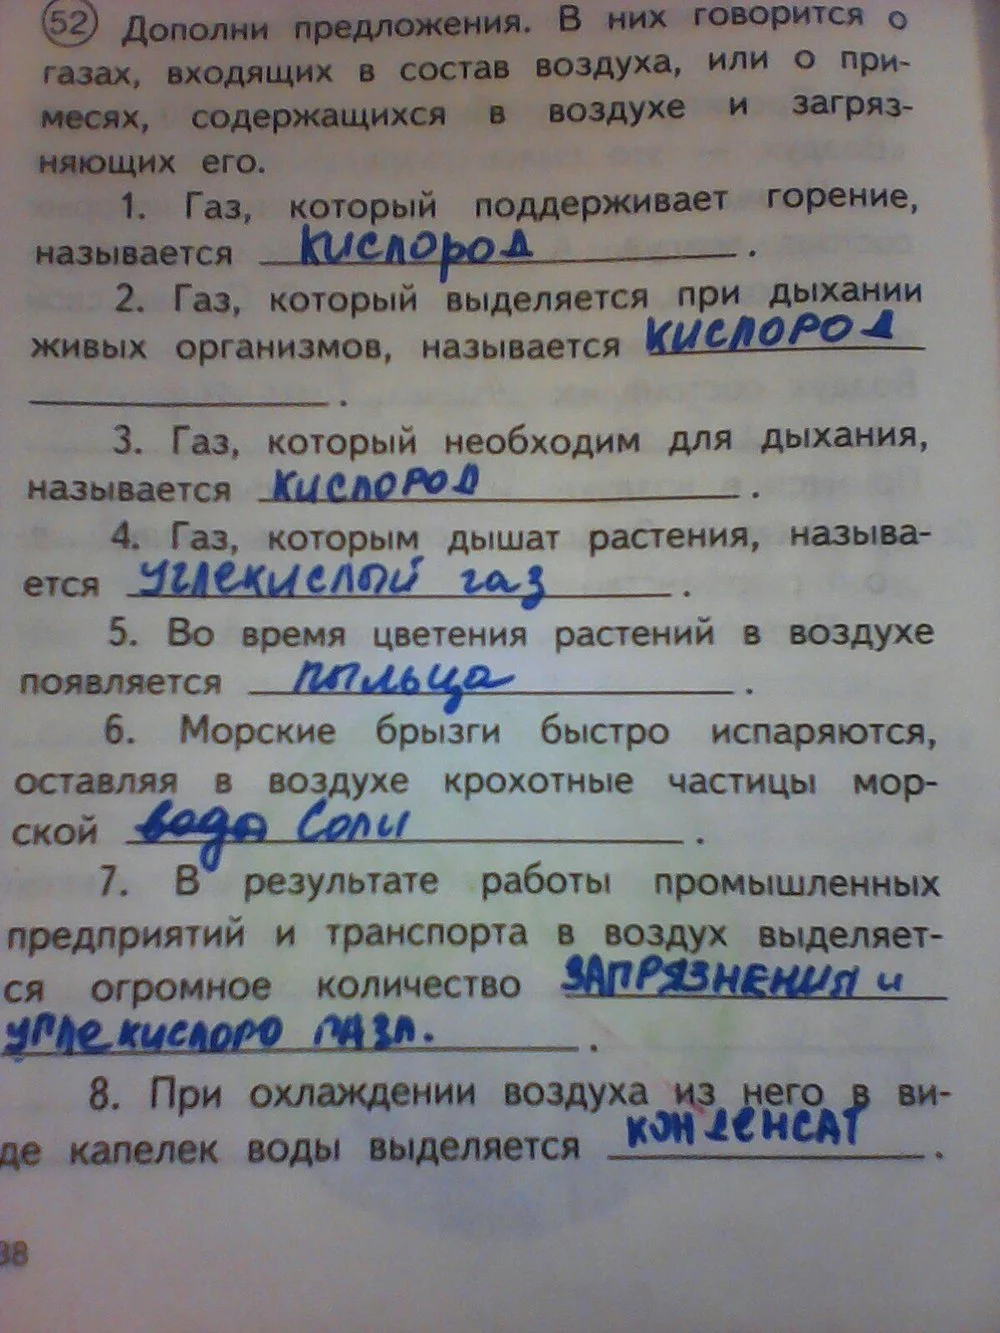 52 Дополни предложения. В них говорится о
газах, входящих в состав воздуха, или о при-
месях, содержащихся в воздухе и загряз-
няющих его.
1. Газ, который поддерживает горение,
называется кислород.
2. Газ, который выделяется при дыхании
живых организмов, называется КИСЛОРОД
.
3. Газ, который необходим для дыхания,
называется КИСЛОРОД.
4. Газ, которым дышат растения, называ-
ется углекислый газ.
5. Во время цветения растений в воздухе
появляется пыльца.
6. Морские брызги быстро испаряются,
оставляя в воздухе крохотные частицы мор-
ской вода Соли.
7. В результате работы промышленных
предприятий и транспорта в воздух выделяет-
ся огромное количество ЗАГРЯЗНЕНИЯ и
УГЛЕКИСЛОГО ГАЗА..
8. При охлаждении воздуха из него в ви-
де капелек воды выделяется КОНДЕНСАТ.
38